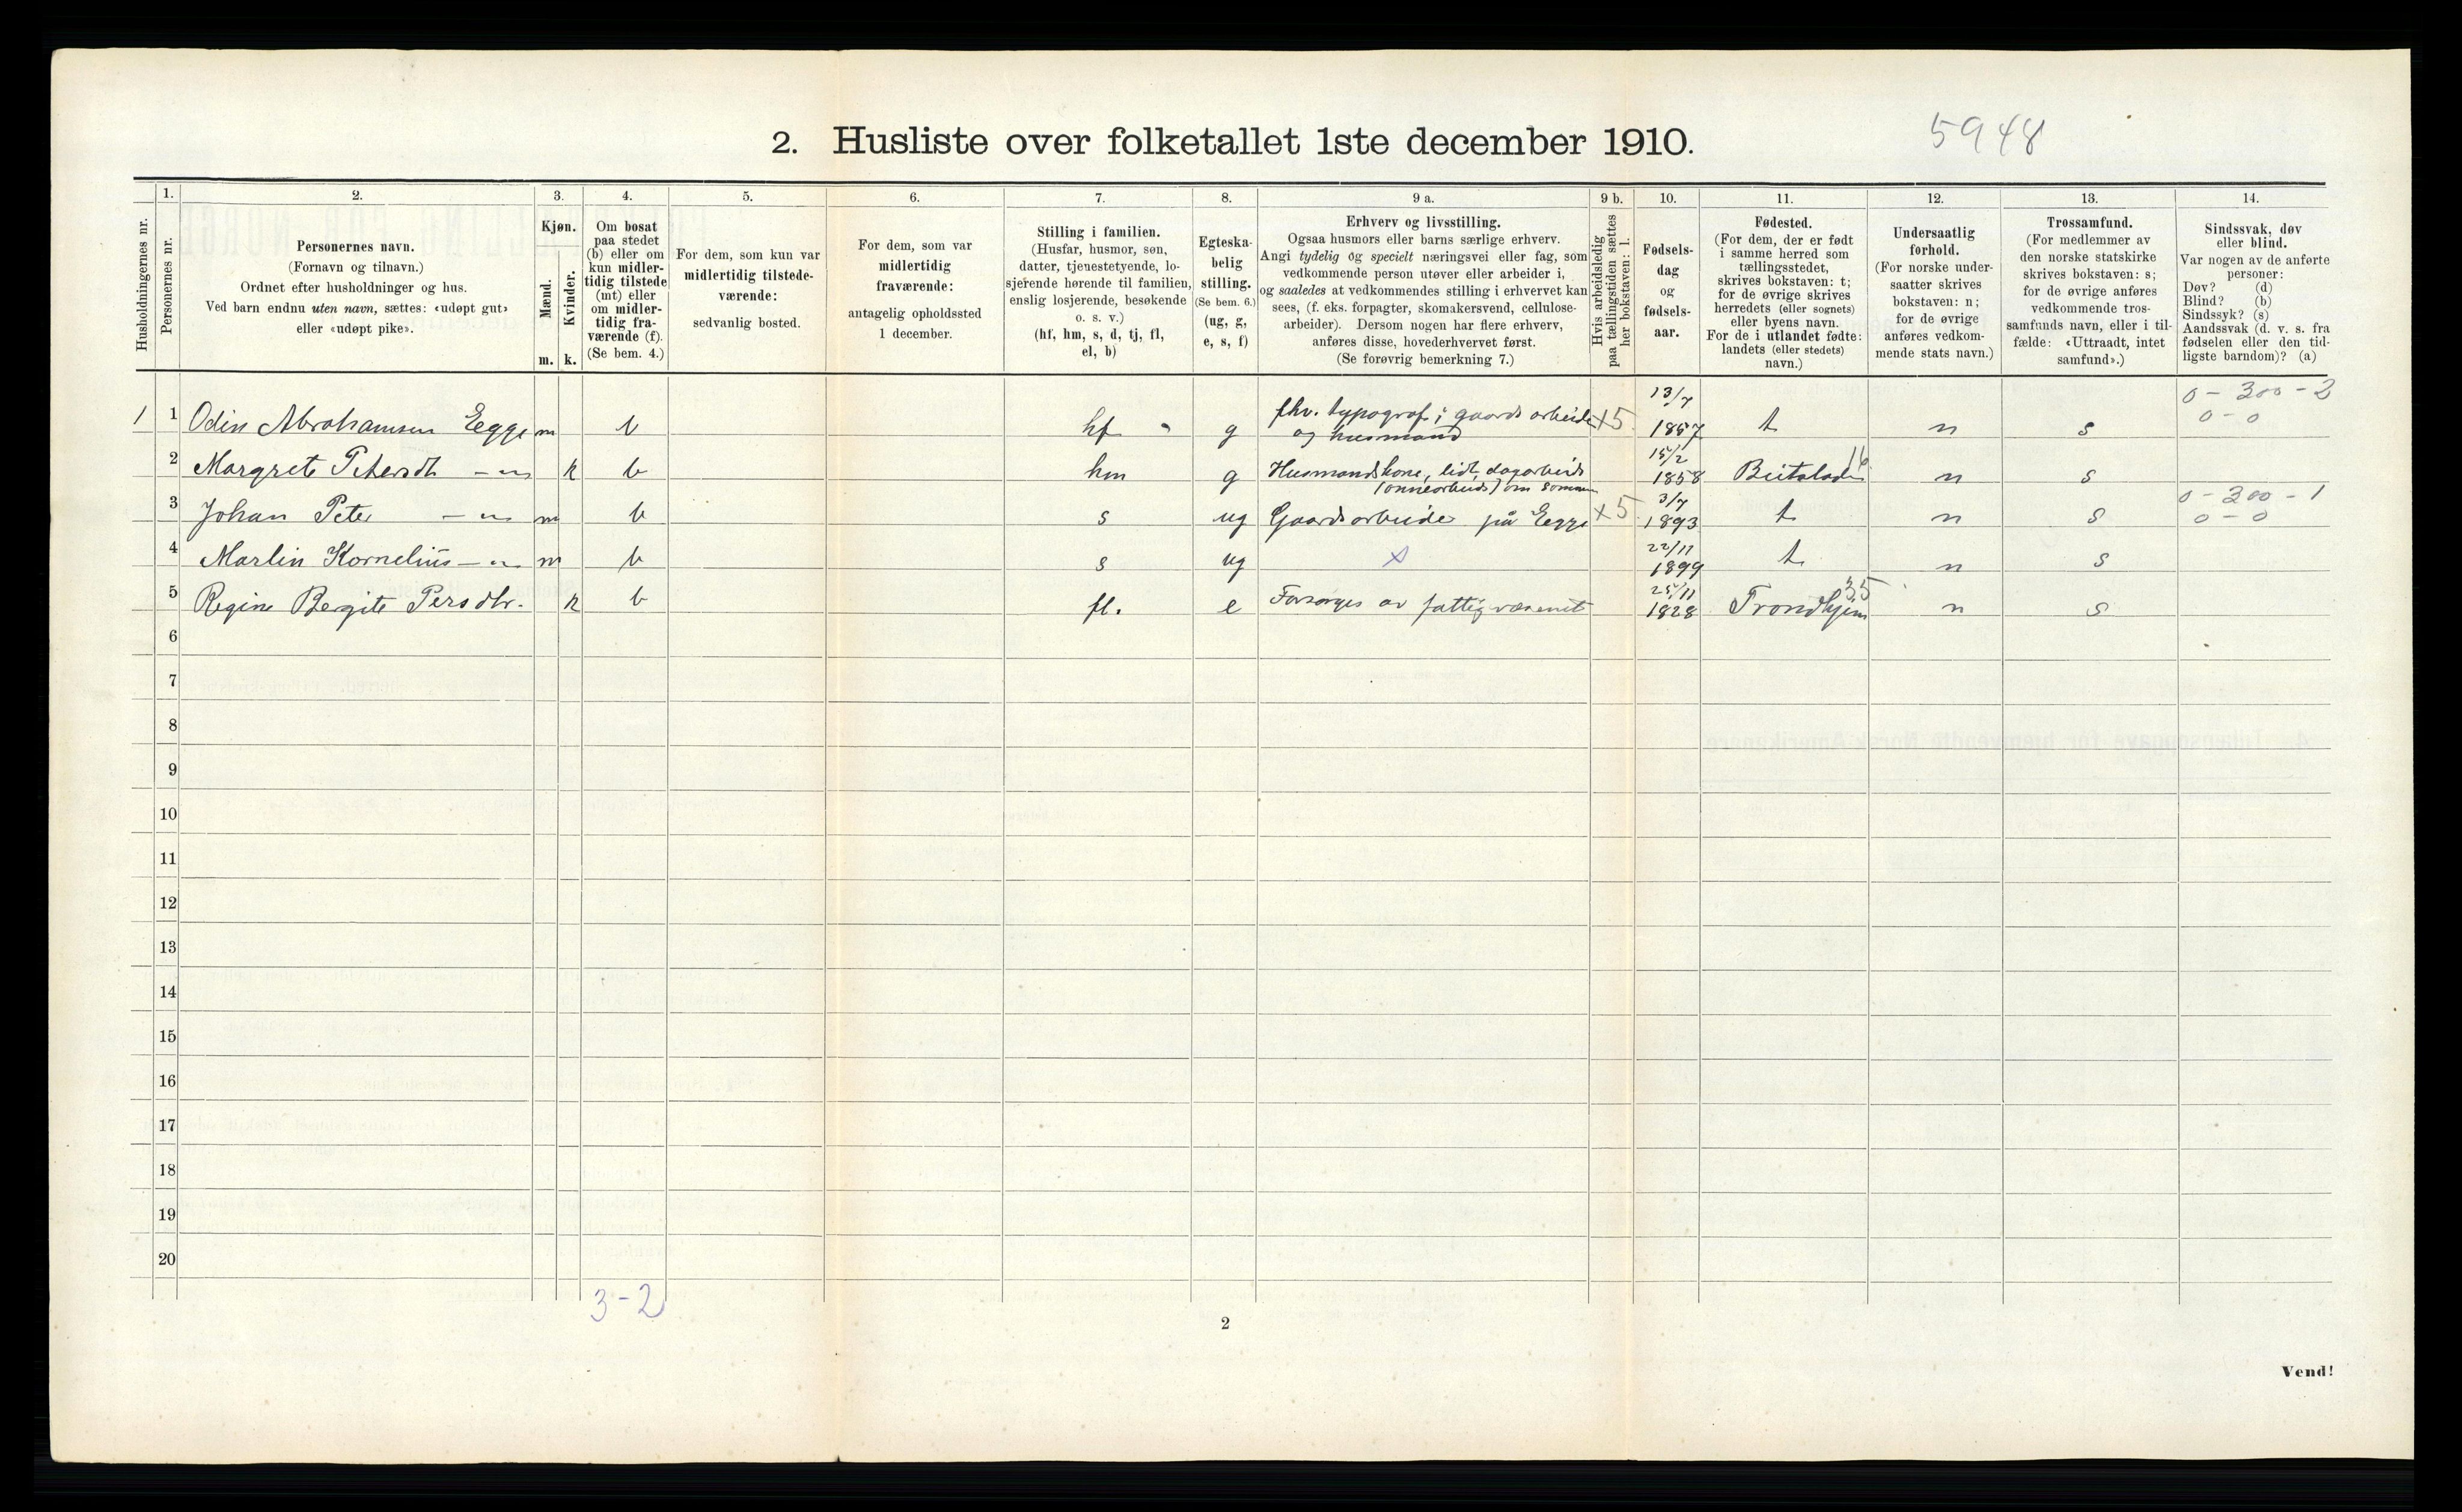 5948
2. Husliste over folketallet 1ste december 1910.
Husholdningernes nr.
1.
Personernes nr.
2.
Personernes navn.
(Fornavn og tilnavn.)
Ordnet efter husholdninger og hus.
Ved barn endnu uten navn, sættes: «udøpt gut»
eller «udøpt pike».
3.
Kjøn.
Mænd.
Kvinder.
m. k.
4.
Om bosat
paa stedet
(b) eller om
kun midler-
tidig tilstede
(mt) eller
om midler-
tidig fra-
værende (f).
(Se bem. 4.)
5.
For dem, som kun var
midlertidig tilstede-
værende:
sedvanlig bosted.
6.
For dem, som var
midlertidig
fraværende:
antagelig opholdssted
1 december.
7.
Stilling i familien.
(Husfar, husmor, søn,
datter, tjenestetyende, lo-
sjerende hørende til familien,
enslig losjerende, besøkende
o. s. v.)
(hf, hm, s, d, tj, fl,
el, b)
8.
Egteska-
belig
stilling.
(Se bem. 6.)
(ug, g,
e, s, f)
9 a.
Erhverv og livsstilling.
Ogsaa husmors eller barns særlige erhverv.
Angi tydelig og specielt næringsvei eller fag, som
vedkommende person utøver eller arbeider i,
og saaledes at vedkommendes stilling i erhvervet kan
sees, (f. eks. forpagter, skomakersvend, cellulose-
arbeider). Dersom nogen har flere erhverv,
anføres disse, hovederhvervet først.
(Se forøvrig bemerkning 7.)
9 b.
Hvis arbeidsledig
paa tællingstiden sættes
her bokstaven: l.
10.
Fødsels-
dag
og
fødsels-
aar.
11.
Fødested.
(For dem, der er født
i samme herred som
tællingsstedet,
skrives bokstaven: t;
for de øvrige skrives
herredets (eller sognets)
eller byens navn.
For de i utlandet fødte:
landets (eller stedets)
navn.)
12.
Undersaatlig
forhold.
(For norske under-
saatter skrives
bokstaven: n;
for de øvrige
anføres vedkom-
mende stats navn.)
13.
Trossamfund.
(For medlemmer av
den norske statskirke
skrives bokstaven: s;
for de øvrige anføres
vedkommende tros-
samfunds navn, eller i til-
fælde: «Uttraadt, intet
samfund».)
14.
Sindssvak, døv
eller blind.
Var nogen av de anførte
personer:
Døv? (d)
Blind? (b)
Sindssyk? (s)
Aandssvak (d. v. s. fra
fødselen eller den tid-
ligste barndom)? (a)
1 1 Odin Abrahamsen Egge m b hf g fhv. typograf; gaardsarbeide og husmand ×5 13/7 1857 t n s 0-300-2 0-0
2 Margrete Petersdt -"- k b hm g Husmandskone, lidt dagarbeids (onnearbeids) om sommen 15/2 1858 Beitstaden 16 n s
3 Johan Peter -"- m b s ug Gaardsarbeide på Egge ×5 3/7 1893 t n s 0-300-1 0-0
4 Marlin Kornelius -"- m b s ug × 22/11 1899 t n s
5 Regine Bergite Persdtr. k b fl. e Forsørges av fattigvæsenet 25/11 1828 Trondhjem 35 n s
6
7
8
9
10
11
12
13
14
15
16
17
18
19
20
3-2
2
Vend!